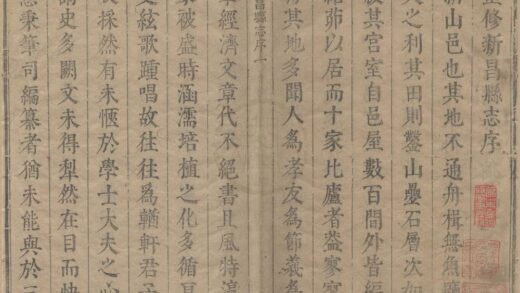 重修新昌縣志序
新山邑也其地不通舟楫無魚
之利其田則鑿山疊石層次如
彼其宮室自邑屋數百間外皆編
茆以居而十家比廬者葢寥寥
若其地多聞人為孝友為節義為
昌縣志序一
經濟文章代不絕書且風特淳
家被盛時涵濡培植之化多循良
文絃歌踵唱故往往爲輶軒君子
採然有未愜於學士大夫之心
謂史多闕文未得犁然在目而快
秉筆司編纂者猶未能與於三